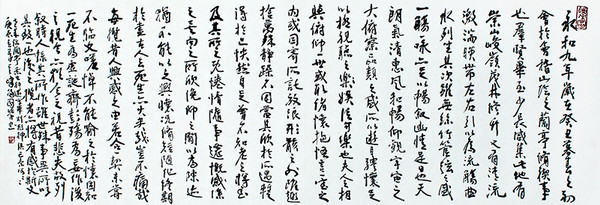 永和九年歲在癸丑暮春之初
會於會稽山陰之蘭亭脩禊事
也羣賢畢至少長咸集此地有
崇山峻嶺茂林脩竹又有清流
激湍映帶左右引以為流觴曲
水列坐其次雖無絲竹管弦之盛
一觴一詠亦足以暢敘幽情是日也天
朗氣清惠風和暢仰觀宇宙之
大俯察品類之盛所以遊目騁懷足
以極視聽之娛信可樂也夫人之相
與俯仰一世或取諸懷抱悟言一室之
內或因寄所託放浪形骸之外雖趣
捨萬殊靜躁不同當其欣於所遇暫
得於己快然自足不知老之將至
及其所之既惓情隨事遷感慨係
之矣向之所欣俛仰之間以為陳迹
猶不能不以之興懷況脩短隨化終期
於盡古人云死生亦大矣豈不痛哉
每攬昔人興感之由若合一契未嘗
不臨文嗟悼不能喻之於懷固知
一死生為虛誕齊彭殤為妄作後
之視今亦由今之視昔悲夫故列
敘時人錄其所述雖世殊事異所以
興懷其致一也後之攬者亦將有感於斯文